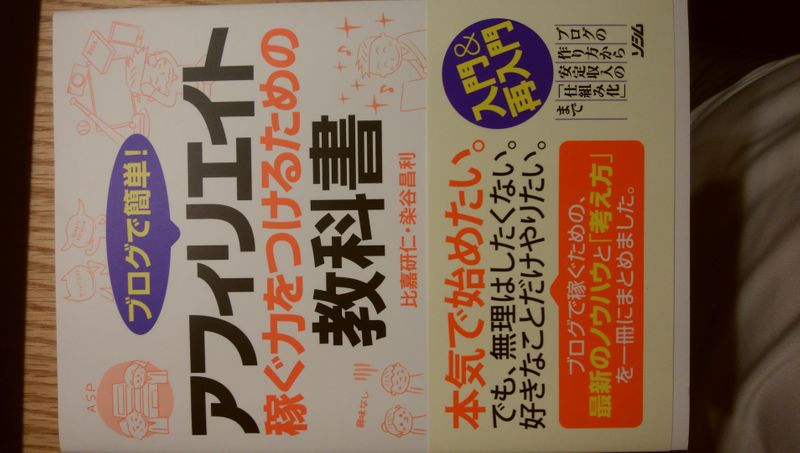 ブログで簡単!
アフィリエイト
稼ぐ力をつけるための
教科書
比嘉研仁・染谷昌利
ASP
興味なし
入門&
再入門
ブログの
作り方から
安定収入の
「仕組み化」
まで
ソシム
本気で始めたい。
でも、無理はしたくない。
好きなことだけやりたい。
ブログで稼ぐための、
最新のノウハウと「考え方」
を一冊にまとめました。